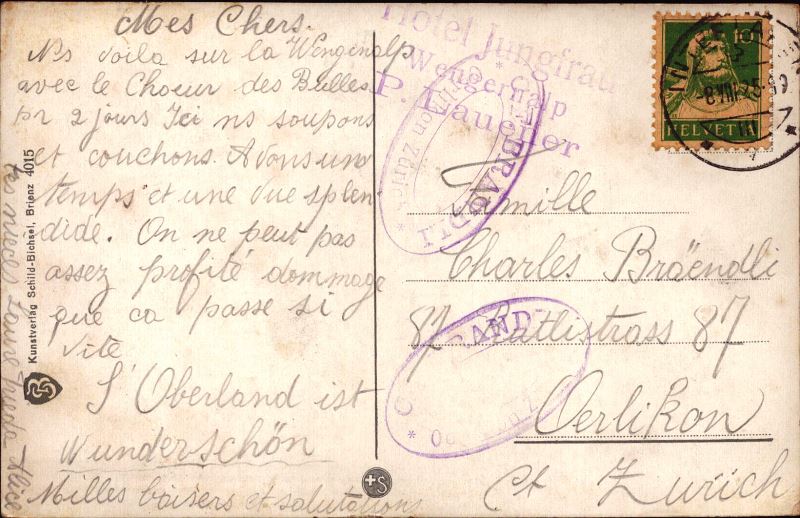 Mes Chers.
Ns voila sur la Wengenalp
avec le Choeur des Bulles
pr 2 jours Ici ns soupons
et couchons. Avons un
temps et une vue splen
dide. On ne peut pas
assez profité dommage
que ca passe si
vite
S'Oberland ist
Wunderschön
Milles baisers et salutations
Alice
Kunstverlag Schild-Bichsel, Brienz 4015
Hotel Jungfrau
Wengernalp
P. Lauener
HELVETIA
10
Famille
Charles Bräendli
87 87
Oerlikon
Ct Zurich
+S